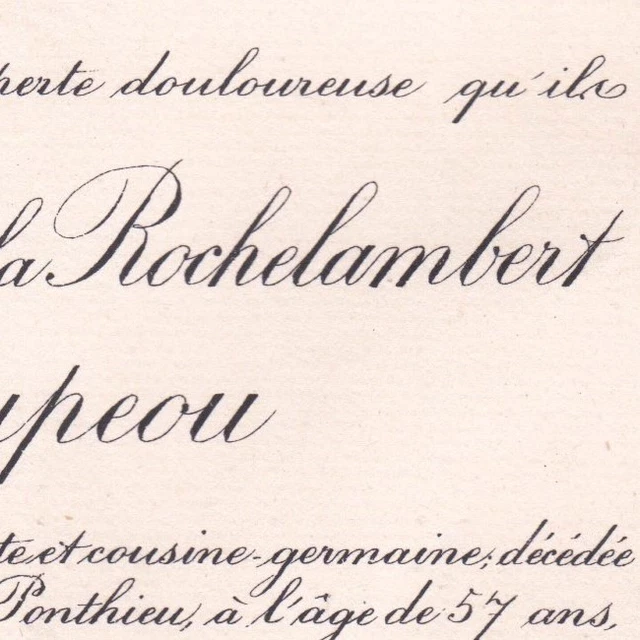 perte douloureuse qu'ils
la Rochelambert
upeou
te et cousine-germaine, décédée
Ponthieu, à l'âge de 57 ans,